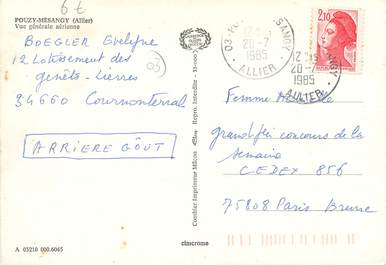 6 €
POUZY-MÉSANGY (Allier)
Vue générale aérienne
BOEGLER Evelyne
12 Lotissement des
genêts - Lierres
34660 Cournonterral
ARRIERE GOÛT
83
12 H 15
20-7
1985
ALLIER
12 H 15
20-7
1985
ALLIER
2,10
Femme
grand jeu concours de la
semaine
CEDEX 856
75808 Paris Brune
Combier Imprimeur Mâcon
A 03210 000.6045
cimcrome